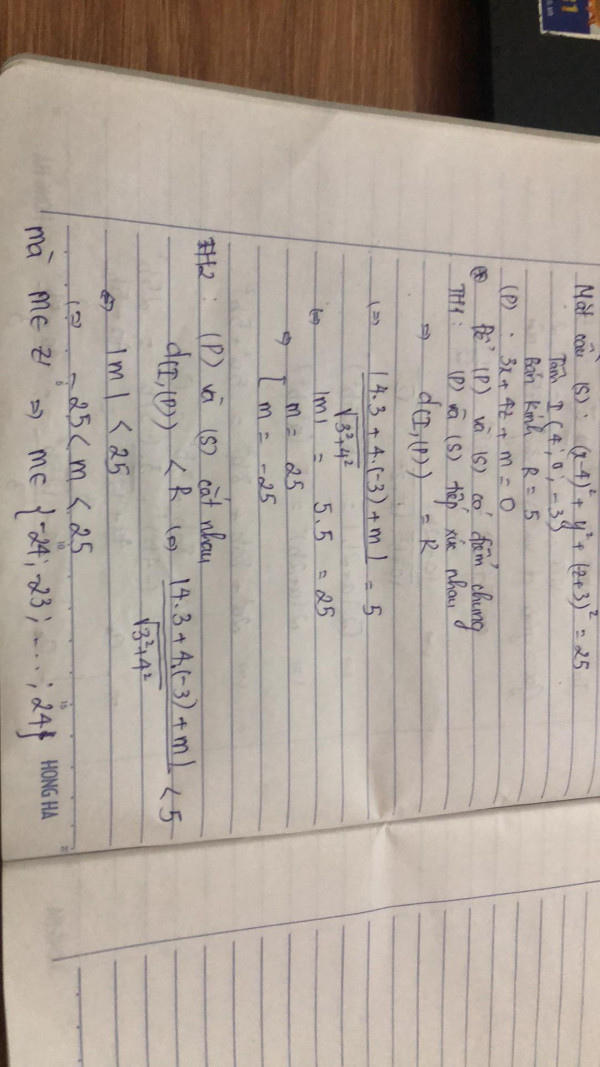 Mặt cầu (S): (x-4)² + y² + (z+3)² = 25
Tâm I(4; 0; -3)
Bán kính R = 5
(P): 3x + 4z + m = 0
⊛ Để (P) và (S) có điểm chung
TH1: (P) và (S) tiếp xúc nhau
⇒ d(I, (P)) = R
(=) |4.3 + 4.(-3) + m| / √3²+4² = 5
(=) |m| = 5.5 = 25
⇒ [ m = 25
m = -25
TH2: (P) và (S) cắt nhau
d(I, (P)) < R (=) |4.3 + 4.(-3) + m| / √3²+4² < 5
⇔ |m| < 25
(=) -25 < m < 25
mà m ∈ Z ⇒ m ∈ {-24; -23; ....; 24}
HONG HA